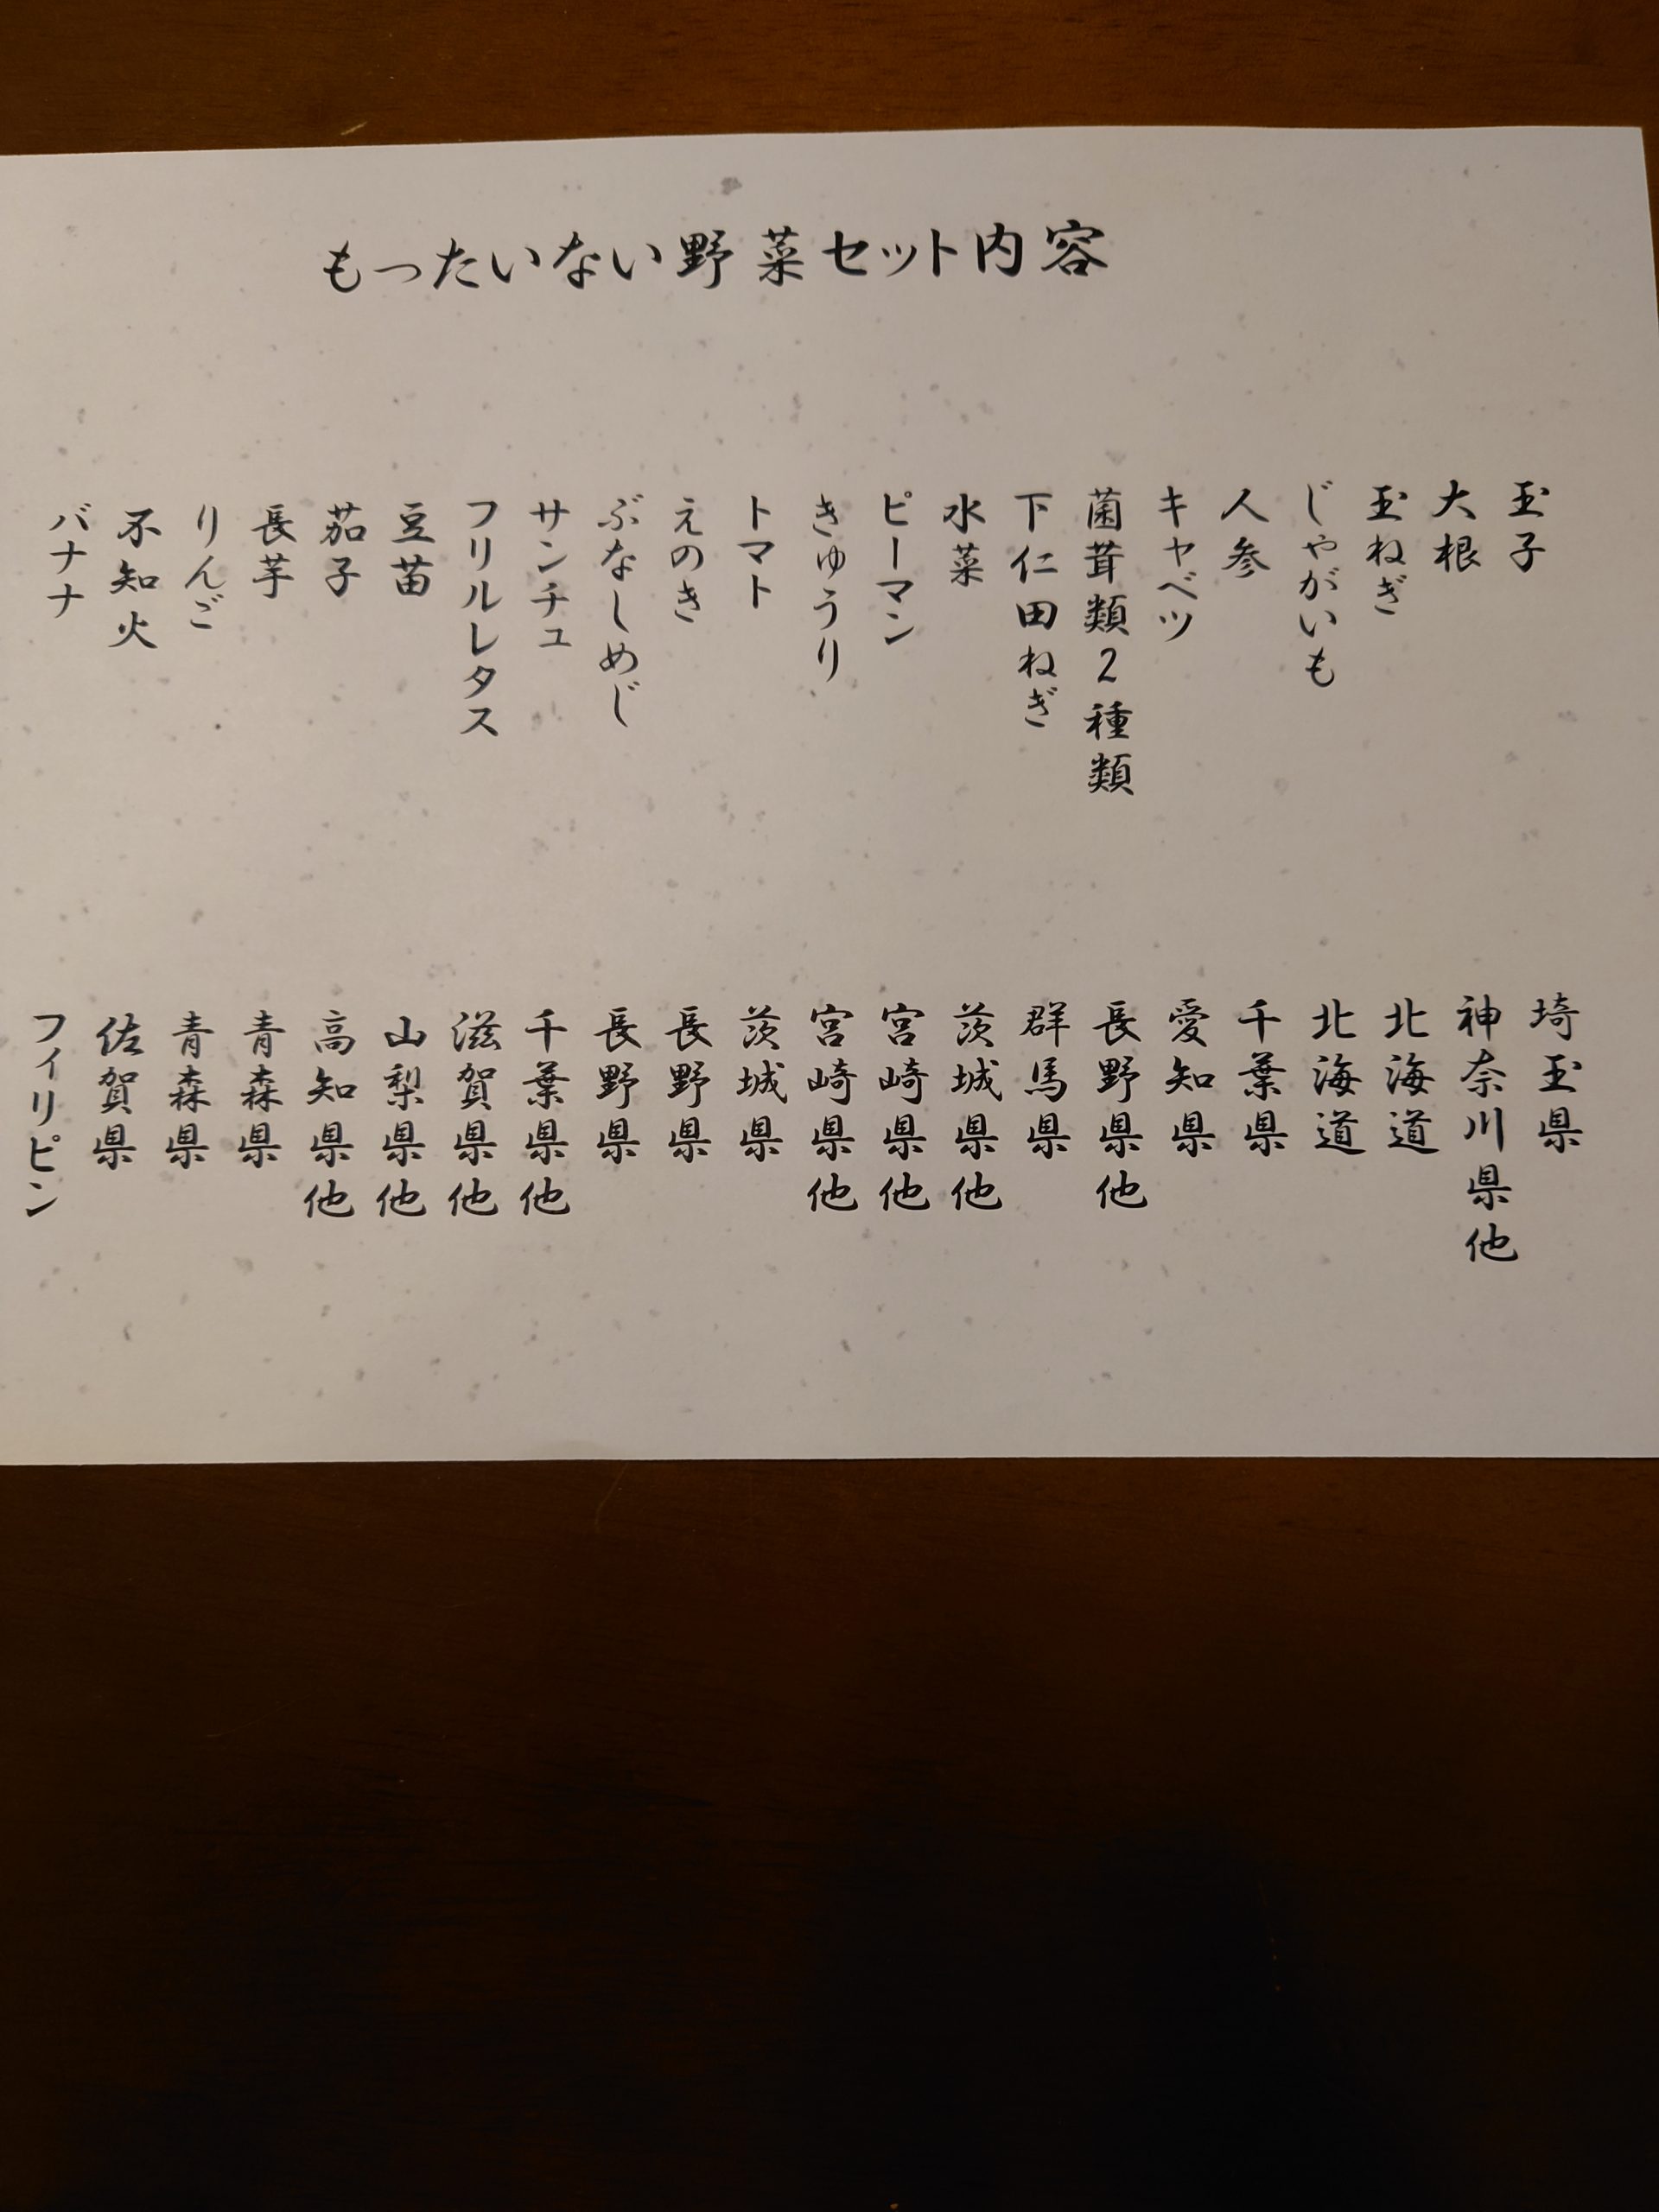 もったいない野菜セット内容
玉子
大根
玉ねぎ
じゃがいも
人参
キャベツ
菌茸類2種類
下仁田ねぎ
水菜
ピーマン
きゅうり
トマト
えのき
ぶなしめじ
サンチュ
フリルレタス
豆苗
茄子
長芋
りんご
不知火
バナナ
埼玉県
神奈川県他
北海道
北海道
千葉県
愛知県
長野県他
群馬県
茨城県他
宮崎県他
宮崎県他
茨城県
長野県
長野県
千葉県他
滋賀県他
山梨県他
高知県他
青森県
青森県
佐賀県
フィリピン